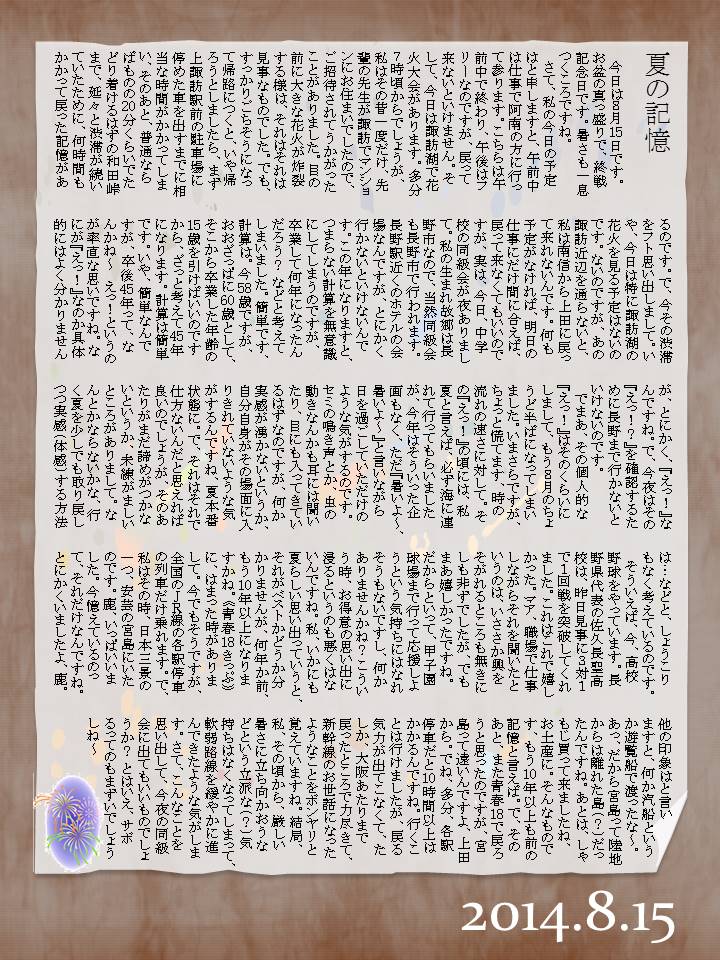 夏の記憶
今日は8月15日です。
お盆の真っ盛りで、終戦
記念日です。暑さも一息
つくころですね。
さて、私の今日の予定
はと申しますと、午前中
は仕事で阿南の方に行っ
て参ります。こちらは午
前中で終わり、午後はフ
リーなのですが、戻って
来ないといけません。そ
して、今日は諏訪湖で花
火大会があります。多分
７時頃からでしょうが、
私はその昔一度だけ、先
輩の先生が諏訪でマンショ
ンにお住まいでしたので、
ご招待されてうかがった
ことがありました。目の
前に大きな花火が炸裂
する様は、それはそれは
見事なものでした。でも、
すっかりごちそうになっ
て帰路につくと、いや帰
ろうとしましたら、まず
上諏訪駅前の駐車場に
停めた車を出すまでに相
当な時間がかかってしま
い、そのあと、普通なら
ばものの20分くらいでた
どり着けるはずの和田峠
まで、延々と渋滞が続い
ていたために、何時間も
かかって戻った記憶があ
るのです。で、今その渋滞
をフト思い出しまして。い
や、今日は特に諏訪湖の
花火を見る予定はないの
です。ないのですが、あの
諏訪近辺を通らないと、
私は南信から上田に戻っ
て来れないんです。何も
予定がなければ、明日の
仕事にだけ間に合えば、
戻って来なくてもいいので
すが、実は、今日、中学
校の同級会が夜ありまし
て。私の生まれ故郷は長
野市なので、当然同級会
も長野市で行われます。
長野駅近くのホテルの会
場なんですが、とにかく
行かないといけないんで
す。この年になりますと、
つまらない計算を無意識
にしてしまうのですが、
卒業して何年になったん
だろう？などと考えて
しまいました。簡単です、
計算は。今58歳ですが、
おおざっぱに60歳として、
そこから卒業した年齢の
15歳を引けばいいのです
から、ざっと考えて45年
になります。計算は簡単
です。いや、簡単なんで
すが、卒後45年って、な
んかね～　えっ！というの
が率直な思いですね。な
にが『えっ！』なのか具体
的にはよく分かりません
が、とにかく、『えっ！』な
んですね。で、今夜はその
『えっ！？』を確認するた
めに長野まで行かないと
いけないのです。
でまあ、その個人的な
『えっ！』はそのくらいに
しまして、もう8月のちょ
うど半ばになってしまい
ました。いまさらですが、
ちょっと慌てます。時の
流れの速さに対して。そ
の『えっ！』の頃には、私
夏と言えば、必ず海に連
れて行ってもらいました
が、今年はそういった企
画もなく、ただ『暑いよ～、
暑いよ～』と言いながら
日を過ごしていただけの
ような気がするのです。
セミの鳴き声とか、虫の
動きなんかも耳には聞い
たり、目にも入ってきてい
るはずなのですが、何か
実感が湧かないというか、
自分自身がその場面に入
りきれていないような気
がするんですね、夏本番
状態に。で、それはそれで
仕方ないんだと思えれば
良いのでしょうが、そのあ
たりがまだ諦めがつかな
いというか、未練がましい
ところがありまして。な
んとかならないかな、行
く夏を少しでも取り戻し
つつ実感（体感）する方法
は…などと、しょうこり
もなく考えているのです。
そういえば、今、高校
野球をやっています。長
野県代表の佐久長聖高
校は、昨日見事に３対１
で１回戦を突破してくれ
ました。これはこれで嬉し
かった。マア、職場で仕事
しながらそれを聞いたと
いうのは、いささか興を
そがれるところも無きに
しも非ずでしたが、でも
まあ嬉しかったですね。
だからといって、甲子園
球場まで行って応援しよ
うという気持ちにはなれ
そうもないですし、何か
ありませんかね？こうい
う時、お得意の思い出に
浸るというのも悪くはな
いんですね。私、いかにも
夏らしい思い出っていうと、
それがベストかどうか分
かりませんが、何年か前、
もう10年以上になりま
すかね。《青春18きっぷ》
に、はまった時がありま
して。今でもそうですが、
全国のＪＲ線の各駅停車
の列車だけ乗れます。で、
私はその時、日本三景の
一つ、安芸の宮島にいた
のです。鹿、いっぱいいま
した。今憶えているのっ
て、それだけなんですね。
とにかくいましたよ、鹿。
他の印象はと言い
ますと、何か汽船という
か遊覧船で渡ったな～。
あっ、だから宮島って陸地
からは離れた島（？）だっ
たんですね。あとは、しゃ
もじ買って来ましたね、
お土産に。そんなもので
す、もう10年以上も前の
記憶と言えば。で、その
あと、また青春18で戻ろ
うと思ったのですが、宮
島って遠いんですよ、上田
から。でね、多分、各駅
停車だと10時間以上は
かかるんですね。行くこ
とは行けましたが、戻る
気力が出てこなくて、た
しか、大阪あたりまで
戻ったところで力尽きて、
新幹線のお世話になった
ようなことをボンヤリと
覚えていますね。結局、
私、その頃から、厳しい
暑さに立ち向かおうな
どという立派な（？）気
持ちはなくなってしまって、
軟弱路線を緩やかに進
んできたような気がしま
す。さて、こんなことを
思い出して、今夜の同級
会に出てもいいものでしょ
うか？とはいえ、サボ
るってのもまずいでしょう
しね～
2014.8.15